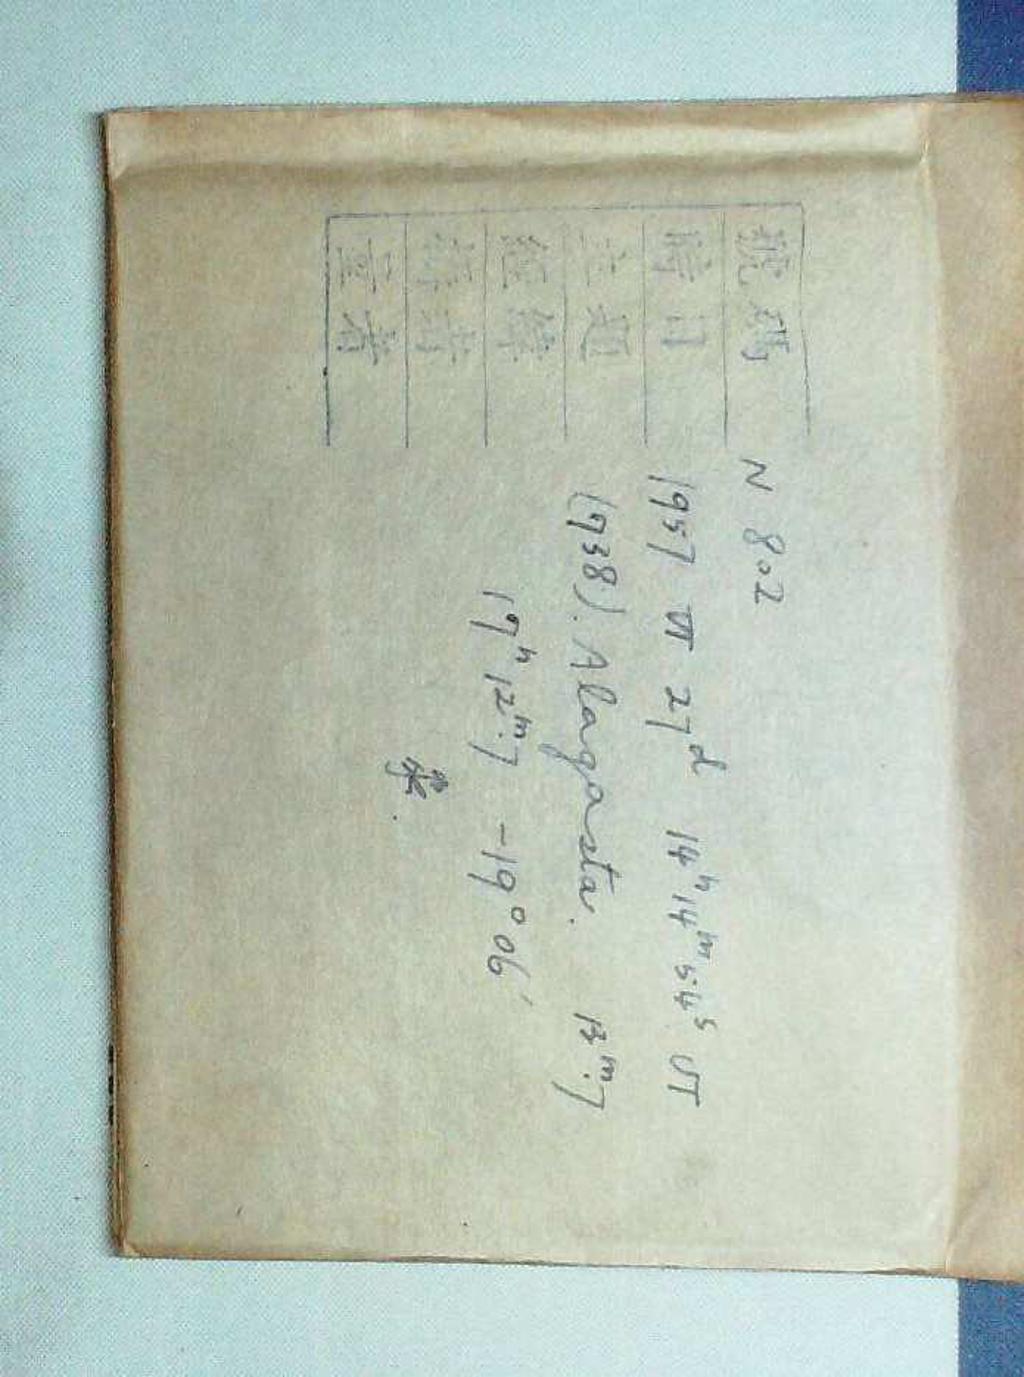 號碼 N 802
時日 1957 VI 27ᵈ 14ʰ14ᵐ54ˢ UT
主題 (738). Alagasta. 13ᵐ.7
經緯 19ʰ12ᵐ.7 -19°06′
张
量者